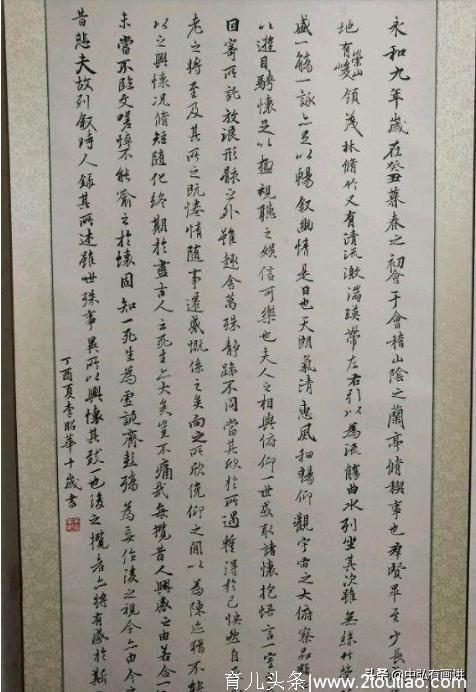 永和九年歲在癸丑暮春之初會于會稽山陰之蘭亭脩稧事也羣賢畢至少長
地有崇山峻領茂林脩竹又有清流激湍暎帶左右引以為流觴曲水列坐其次雖無絲竹管
盛一觴一詠亦足以暢叙幽情是日也天朗氣清惠風和暢仰觀宇宙之大俯察品類
以遊目騁懷足以極視聽之娛信可樂也夫人之相與俯仰一世或取諸懷抱悟言一室
因寄所託放浪形骸之外雖趣舍萬殊靜躁不同當其欣於所遇蹔得於己怏然自
老之將至及其所之既惓情隨事遷感慨係之矣向之所欣俛仰之間以為陳迹猶不能
以之興懷況脩短隨化終期於盡古人云死生亦大矣豈不痛哉每攬昔人興感之由若合一
未嘗不臨文嗟悼不能喻之於懷固知一死生為虛誕齊彭殤為妄作後之視今亦由今
昔悲夫故列叙時人錄其所述雖世殊事異所以興懷其致一也後之攬者亦將有感於斯
丁酉夏李昭華十歲書
头条 @中弘有画讲
育儿头条 www.2toutiao.com